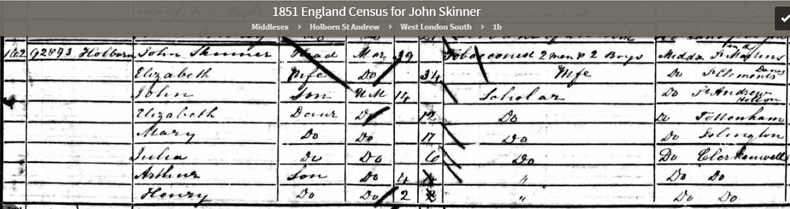 1851 England Census for John Skinner
Middlesex > Holborn St Andrew > West London South > 1b
162 92 & 93 Holborn John Skinner Head Mar 39 Tobacconist 2 men & 2 Boys Middx
Elizabeth Wife Do 34 Wife Do St Clements
John Son UM 14 Scholar Do St Andrew Holborn
Elizabeth Daur Do 12 Do Do Tottenham
Mary Do Do Do Do Islington
Julia Do Do 6 Do Do Clerkenwell
Arthur Son Do 4 " Do Do
Henry Do Do 2 " Do Do